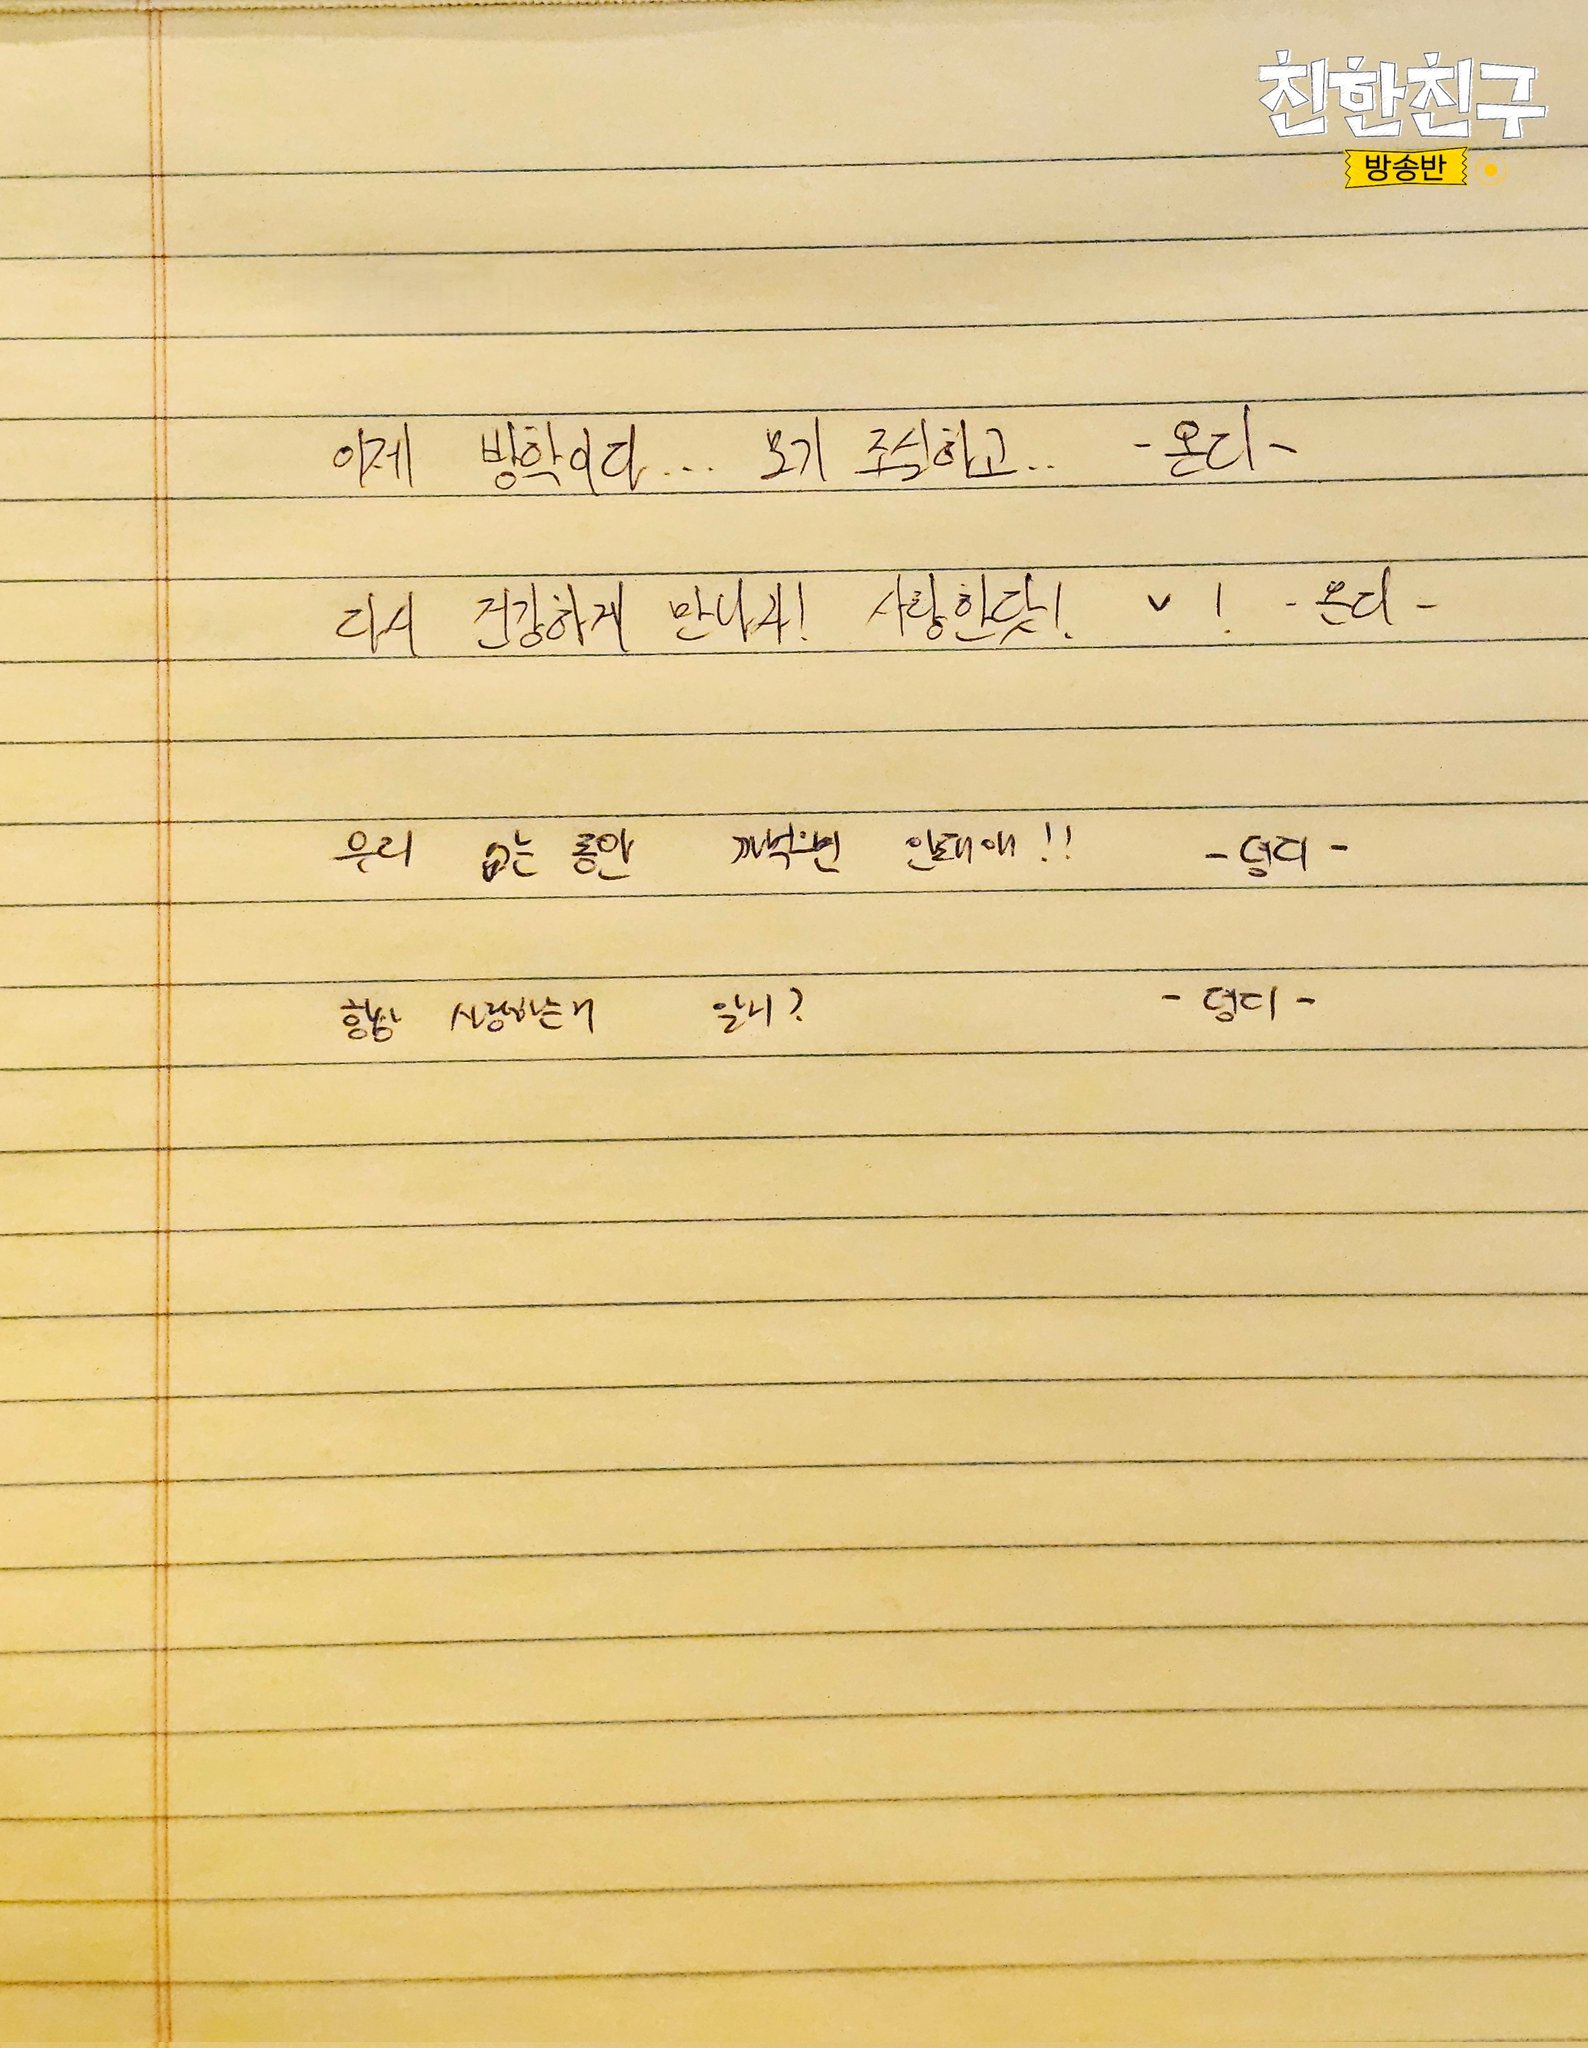 친한친구
방송반
이제 방학이다... 모기 조심하고.. -온디-
다시 건강하게 만나자! 사랑한닷! v ! -온디-
우리 없는 동안 까먹으면 안돼애!! -덩디-
항상 사랑하는거 알지? -덩디-